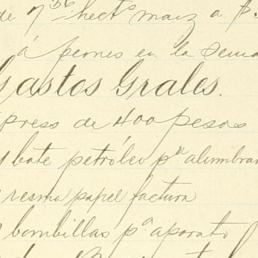 de 7 hects maiz a $
á peones en la sema
Gastos Grales.
press de 400 pesos
bote petróleo pa alumbra
resma papel factura
bombillas pa aparato